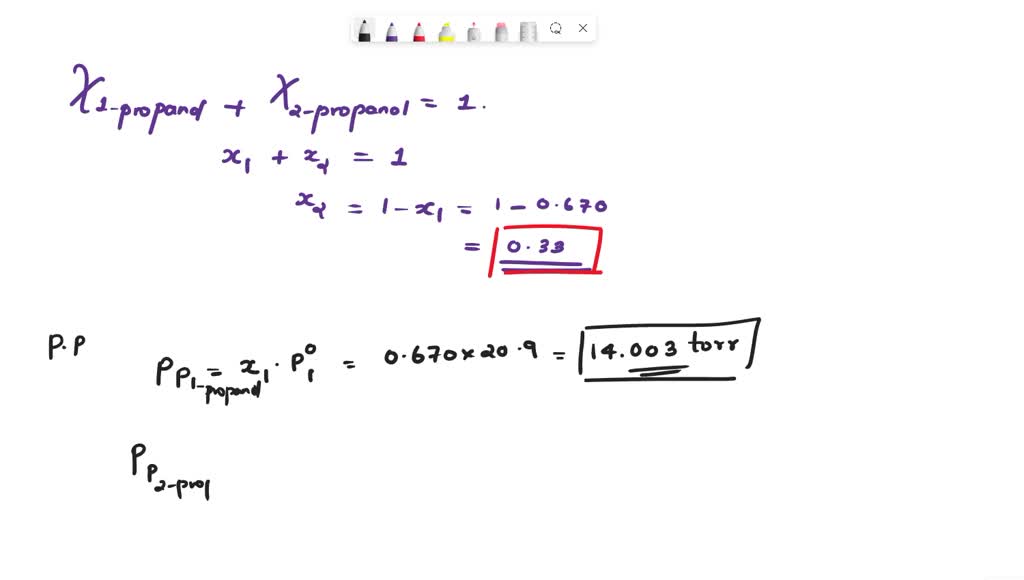 X1-propanol + X2-propanol = 1.
x1 + x2 = 1
x2 = 1 - x1 = 1 - 0.670
= 0.33
P.P
PP1-propanol = x1 . P1^0 = 0.670 × 20.9 = 14.003 torr
PP2-prop